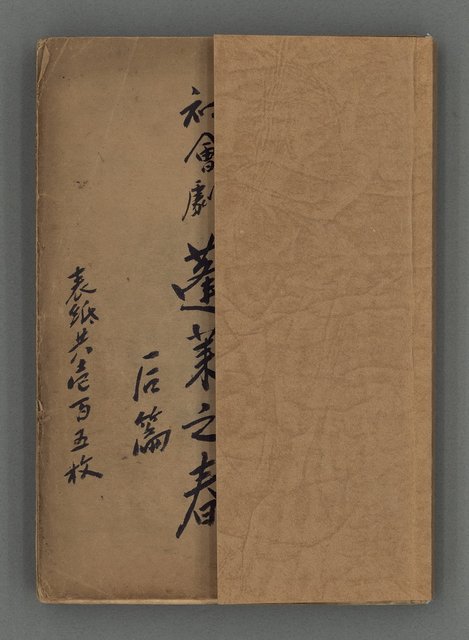 社會劇 蓬萊之春
后篇
表紙共壱百五枚